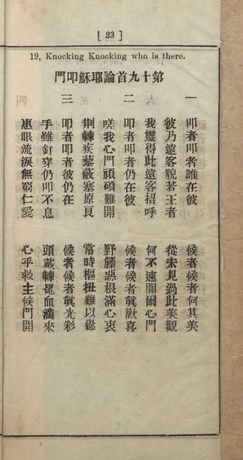 [ 23 ]
19, Knocking Knocking who is there.
第十九首論耶穌叩門
一
叩者叩者誰在彼 候者候者何其美
彼乃遠客貌若王者 從未見過此美觀
我靈得此遠客招呼 何不速開爾心門
二
叩者叩者彼仍在 候者候者眞歡喜
嘆我心門頑硬難開 野藤惡根滿心衷
荊棘疾藜蔽塞原 當時樞扭難以鬆
三
叩者叩者彼仍在 候者候者眞光彩
手雖釘穿仍叩不息 頭戴棘冕血滴來
惠眼流淚無窮仁愛 心乎救主候門開